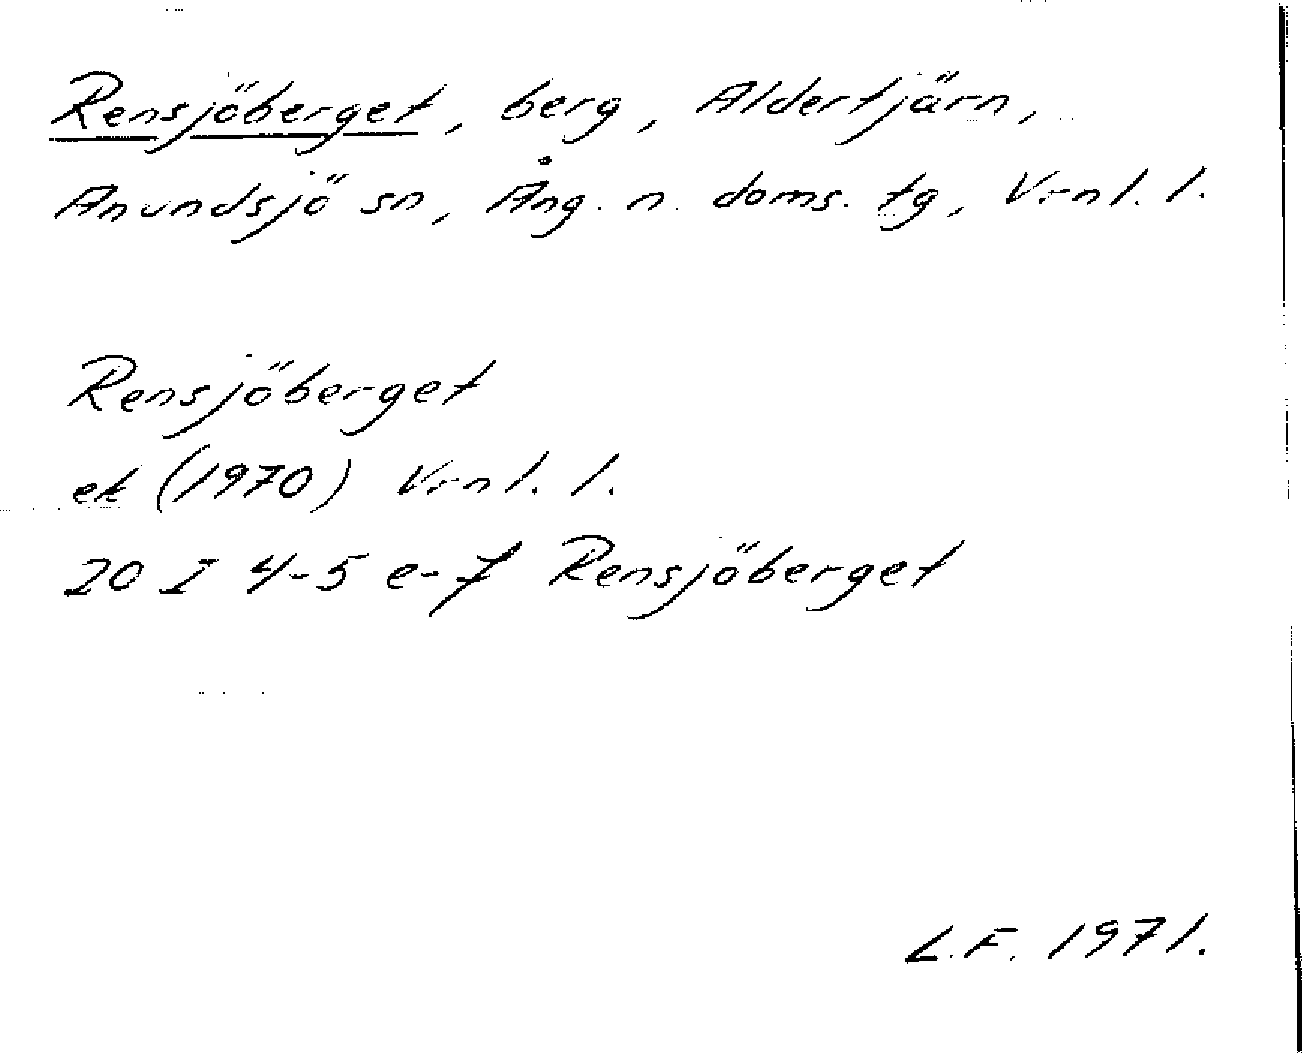 Rensjöberget, berg, Aldertjärn,
Anundsjö sn, Ång. n. doms. tg, Vrnl. l.
Rensjöberget
ek (1970) Vrnl. l.
20 I 4-5 e-f Rensjöberget
L.F. 1971.